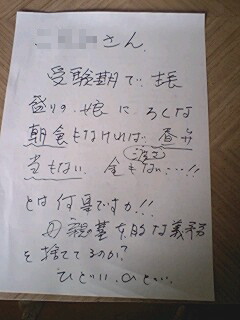 さん
受験期で、 長
盛りの娘に ろくな
朝食もなければ 昼弁
当もない 金もない…!!
渡る
とは何事ですか!!
母親基本的な義務
を捨ててるのか?
ひどい、ひと…